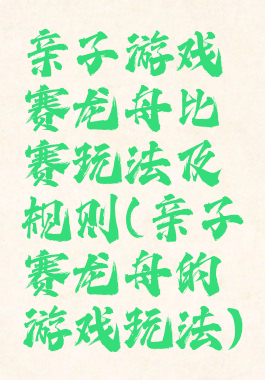 亲子游戏
赛龙舟比
赛玩法及
规则(亲子
赛龙舟的
游戏玩法)